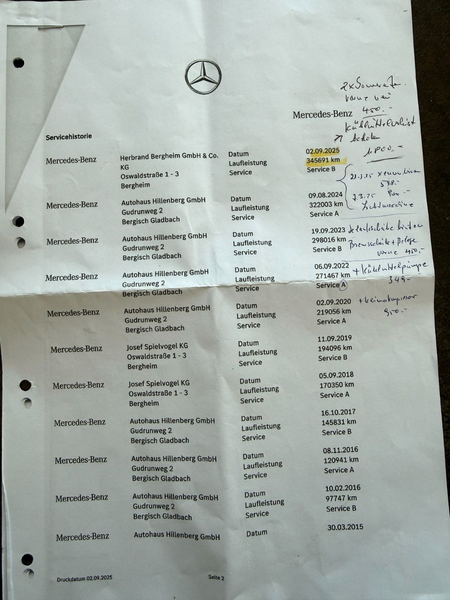 Mercedes-Benz
450.-
Servicehistorie
Mercedes-Benz Herbrand Bergheim GmbH & Co. KG Datum 02.09.2025
Oswaldstraße 1 - 3 Laufleistung 345691 km
Bergheim Service Service B
Mercedes-Benz Autohaus Hillenberg GmbH Datum 09.08.2024
Gudrunweg 2 Laufleistung 322003 km
Bergisch Gladbach Service Service A
Mercedes-Benz Autohaus Hillenberg GmbH Datum 19.09.2023
Gudrunweg 2 Laufleistung 298016 km
Bergisch Gladbach Service Service B
Mercedes-Benz Autohaus Hillenberg GmbH Datum 06.09.2022
Gudrunweg 2 Laufleistung 271467 km
Bergisch Gladbach Service Service A
Mercedes-Benz Autohaus Hillenberg GmbH Datum 02.09.2020
Gudrunweg 2 Laufleistung 219056 km
Bergisch Gladbach Service Service A
Mercedes-Benz Josef Spielvogel KG Datum 11.09.2019
Oswaldstraße 1 - 3 Laufleistung 194096 km
Bergheim Service Service B
Mercedes-Benz Josef Spielvogel KG Datum 05.09.2018
Oswaldstraße 1 - 3 Laufleistung 170350 km
Bergheim Service Service A
Mercedes-Benz Autohaus Hillenberg GmbH Datum 16.10.2017
Gudrunweg 2 Laufleistung 145831 km
Bergisch Gladbach Service Service B
Mercedes-Benz Autohaus Hillenberg GmbH Datum 08.11.2016
Gudrunweg 2 Laufleistung 120941 km
Bergisch Gladbach Service Service A
Mercedes-Benz Autohaus Hillenberg GmbH Datum 10.02.2016
Gudrunweg 2 Laufleistung 97747 km
Bergisch Gladbach Service Service B
Mercedes-Benz Autohaus Hillenberg GmbH Datum 30.03.2015
Druckdatum 02.09.2025 Seite 2